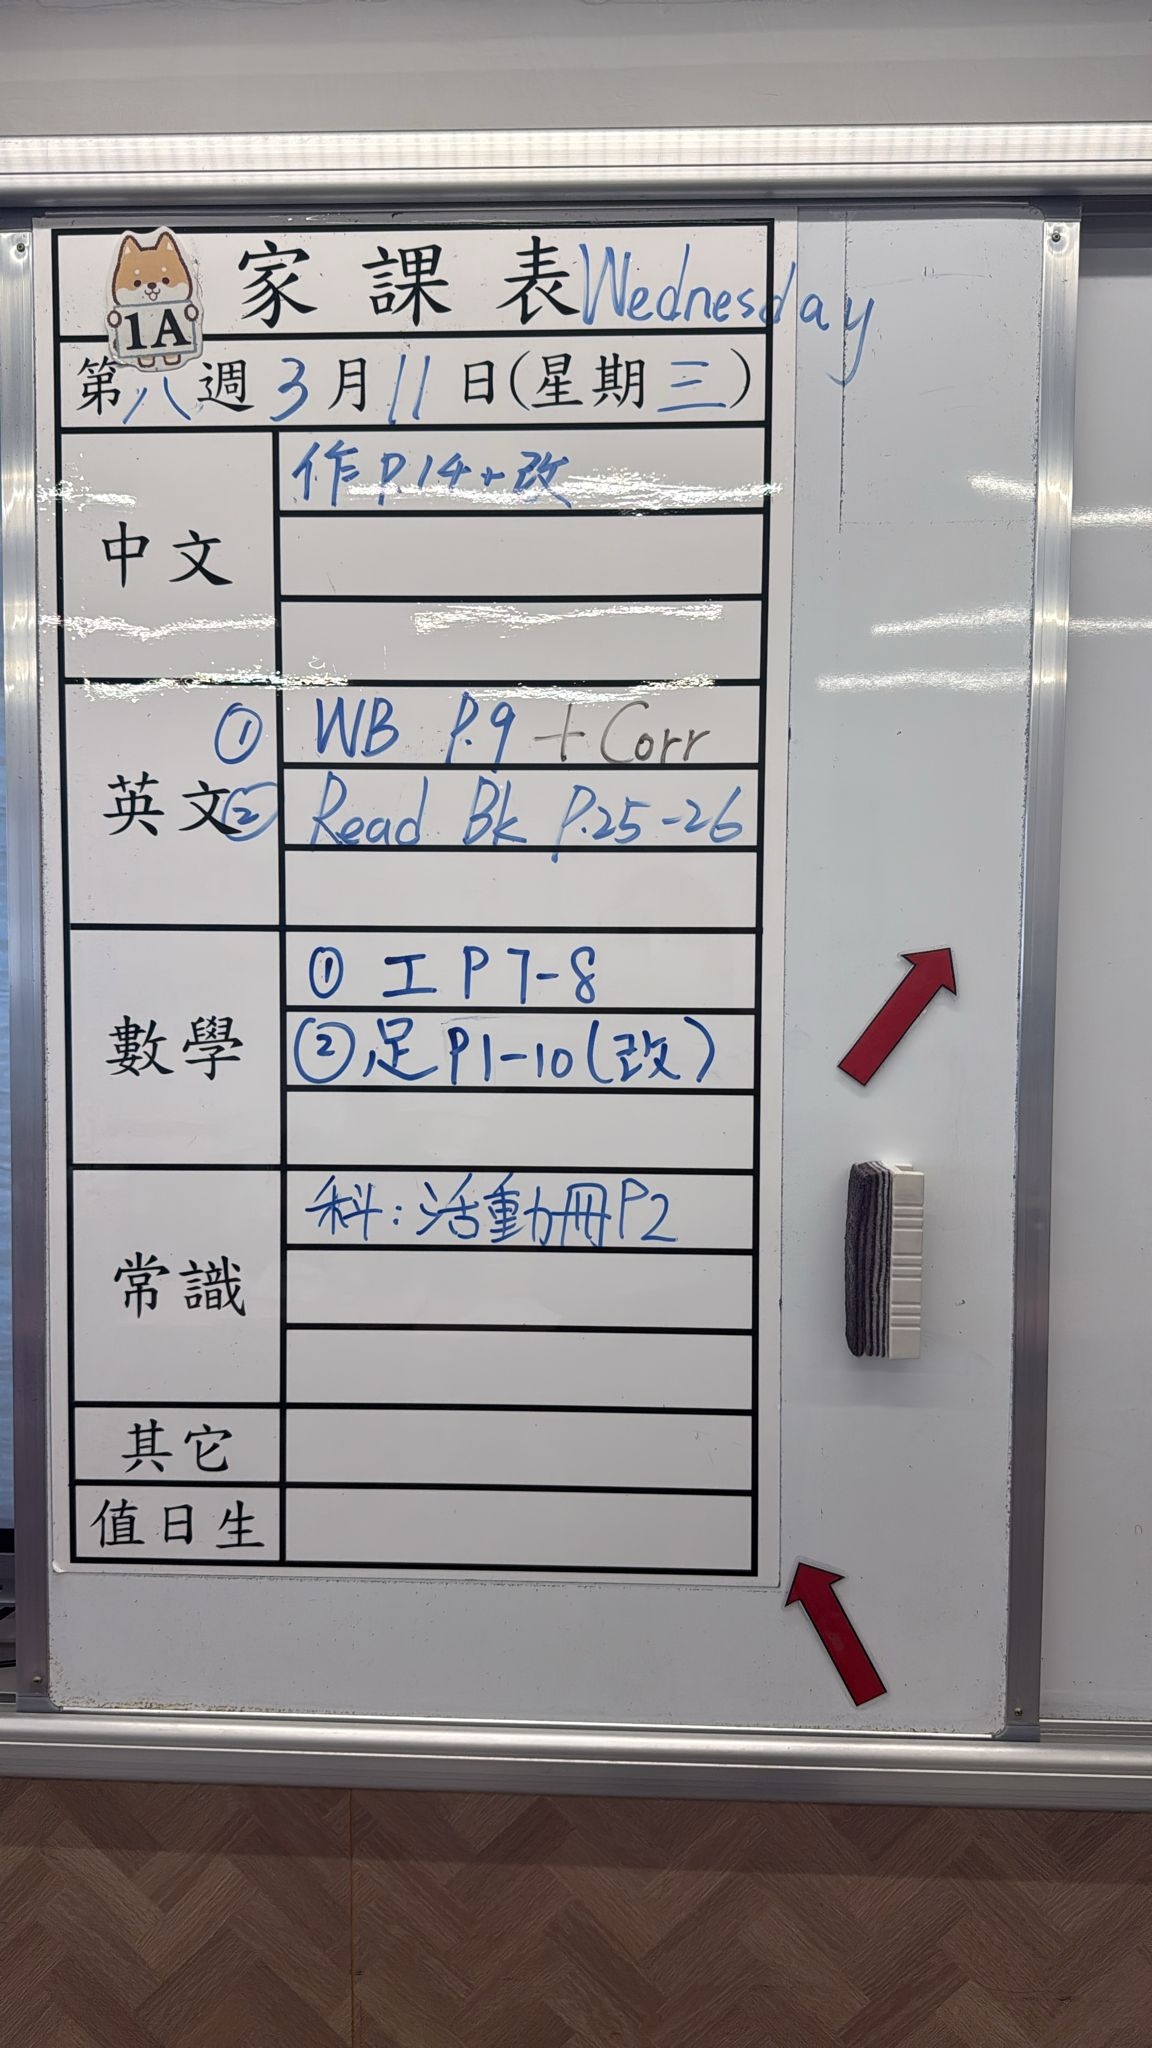 1A 家課表 Wednesday
第八週 3月11日(星期三)
中文
作 P.14+改
英文
① WB P.9 + Corr
② Read Bk P.25-26
數學
① 工 P7-8
② 足 P1-10(改)
常識
科:活動冊P2
其它
值日生